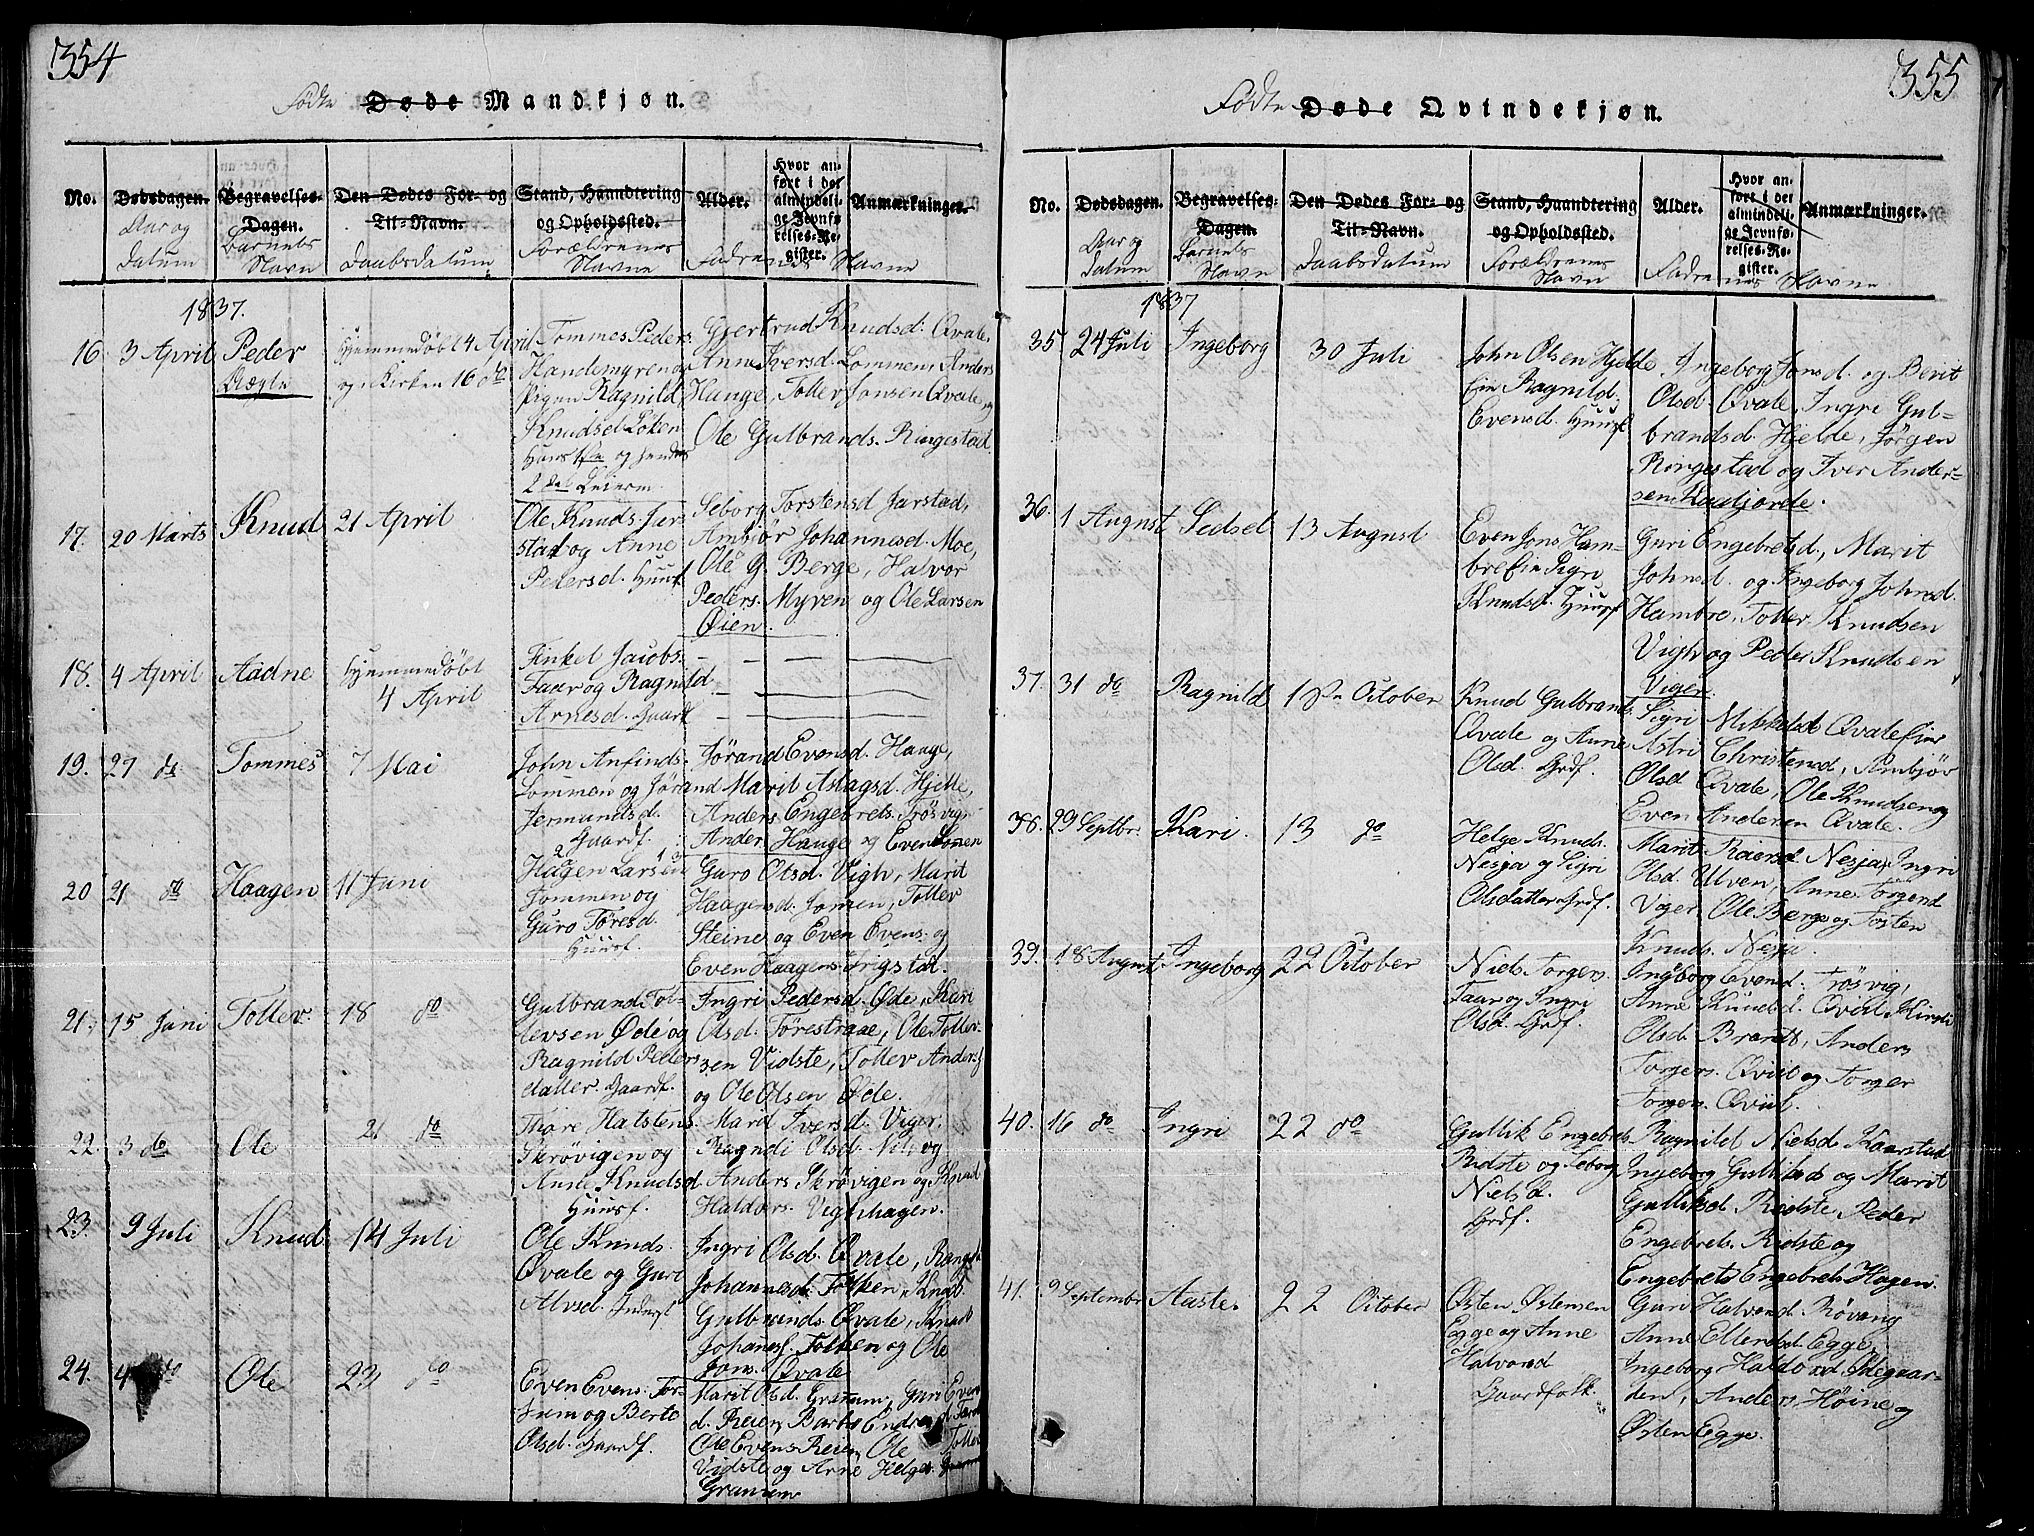 354
Fødte Døde Mandkjøn.
No.
Dødsdagen.
Aar og
Datum
Begravelses-
Dagen.
Barnets
Navn
Den Dødes For- og
Til-Navn.
Daabsdatum
Stand, Haandtering
og Opholdssted.
Forældrenes
Navne
Alder.
Hvor an-
ført i det
almindeli-
ge Jevnfø-
relses-Re-
gister.
Anmærkninger.
Faddrenes Navne
1837.
16. 3 April
Peder
Uægte
Hjemmedøbt 4 April
og i Kirken 16 do
Tommes Peders.
Handemyren og
Pigen Ragnild
Knudsd. Løken
2det Leierm.
Gjertrud Knudsd. Qvale,
Anne Iversd. Lommen, Anders
Hauge, Tollev Jonsen Qvale, og
Ole Gulbrands. Ringestad
17. 20 Marts
Knud
21 April
Ole Knuds. Jar-
stad og Anne
Pedersd. Huusf.
Seborg Torstensd Jarstad,
Ambjør Johannesd. Moe,
Ole G. Berge, Halvor
Peders. Myren og Ole Larsen
Øien.
18. 4 April
Aadne
Hjemmedøbt
4 April
Finkel Jacobs.
Faar og Ragnild
Arnesd. Gaardf.
19. 27 do
Tommes
7 Mai
John Anfinds.
Lommen og Jørand
Jermundsd.
Gaardf.
Jørand Evensd. Hauge,
Marit Aslagsd. Hjelle,
Anders Engebrets. Trøsvig,
Anders Hauge og Even
20 21 do
Haagen
11 Juni
Hagen Larsen
Jommen og
Guro Tøresd.
Huusf.
Guro Olsd. Vigh, Marit
Haagensd. Jomen, Tollev
Steine og Even Evens. og
Even Haagens. Frigstad.
21. 15 Juni
Tollev
18 do
Gulbrand Tol-
levsen Øde og
Ragnild Peders
datter. Gaardf.
Ingri Pedersd. Øde, Kari
Olsd. Førestrae, Ole Tollev-
sen Vidste, Tollev Anders
og Ole Olsen Øde.
22. 3 do
Ole
21 do
Thore Halstens.
Skrøvigen og
Anne Knudsd.
Huusf.
Marit Iversd. Viger,
Ragndi Olsd. Nøv, og
Anders Skrøvigen og Knud
Haldors. Vighhagen.
23. 9 Juli
Knud
14 Juli
Ole Knuds.
Qvale og Guri
Alvsd.
Ingri Olsd. Qvale,
Johannesd. Følken, Knud
Gulbrands. Qvale, Knud
Johannesf. Følken og Ole
Jons. Qvale
24. 4 do
Ole
23 do
Even Evens.
og Berte
Olsd. Gaardf.
Marit Olsd. Granum, Guri Evens
d. Reien, Barbr
Ole Evens. Reien, Ole Tollev
Vidste og Arne Helges.
Granum
355
Fødte Døde Qvindekjøn.
No.
Dødsdagen.
Aar og
Datum
Begravelses-
Dagen.
Barnets
Navn
Den Dødes For- og
Til-Navn.
Daabsdatum
Stand, Haandtering
og Opholdssted.
Forældrenes
Navne
Alder.
Hvor an-
ført i det
almindeli-
ge Jevnfø-
relses-Re-
gister.
Anmærkninger.
Faddrenes Navne
1837
35. 24 Juli
Ingeborg
30 Juli
John Olsen Hjelde
Ragnild
Evensd. Huusf.
Ingeborg Jonsd. og Berit
Olsd. Qvale, Ingri Gul-
brandsd. Hjelde, Jørgen
Ringestad og Iver Ander-
sen
36. 1 August
Sidsel
13 August
Even Jons Ham-
bre Sigri
Knudsd. Huusf.
Guri Engebretsd., Marit
Johnsd. og Ingeborg Johnsd.
Hambre, Tollev Knudsen
Vigh og Peder Knudsen
Viger.
37. 31 do
Ragnild
1ste October
Knud Gulbrands.
Qvale og Anne
Olsd. Grdf.
Sigri Mikkelsd. Qvale
Astri Christensd., Ambjør
Olsd. Qvale, Ole Knudsen og
Even Andersen Qvale.
38. 29 Septbr.
Kari.
13 do
Helge Knuds.
Nesja og Sigri
Olsdatter. Grdf.
Marit Reiersd. Nesja, Ingri
Olsd. Ulven, Anne Torgersd
Viger, Ole Berge og Torsten
Knuds. Nesja.
39. 18 August
Ingeborg
22 October
Niels Torgers.
Faar og Ingri
Olsd. Grdf.
Ingeborg Evensd. Trøsvig,
Anne Knudsd. Qvil, Kirsti
Olsd. Brandt, Anders
Torgers. Qvil og Torger
Torgers. Qvil.
40. 16 do
Ingri
22 do
Gullik Engebrets.
Ridste og Seborg
Nielsd.
Grdf.
Ragnild Nielsd. Kaarstad
Ingeborg Gulliksd. og Marit
Gulliksd. Ridste, Peder
Engebrets. Ridste og
Engebrets Engebrets. Hagen.
41. 9 September
Aaste
22 October
Østen Østensen
Egge og Anne
Halvorsd
Gaardfolk.
Guri Halvorsd. Røvang
Anne Ellendsd. Egge,
Ingeborg Haldorsd. Ødegaar-
den, Anders Høine og
Østen Egge.